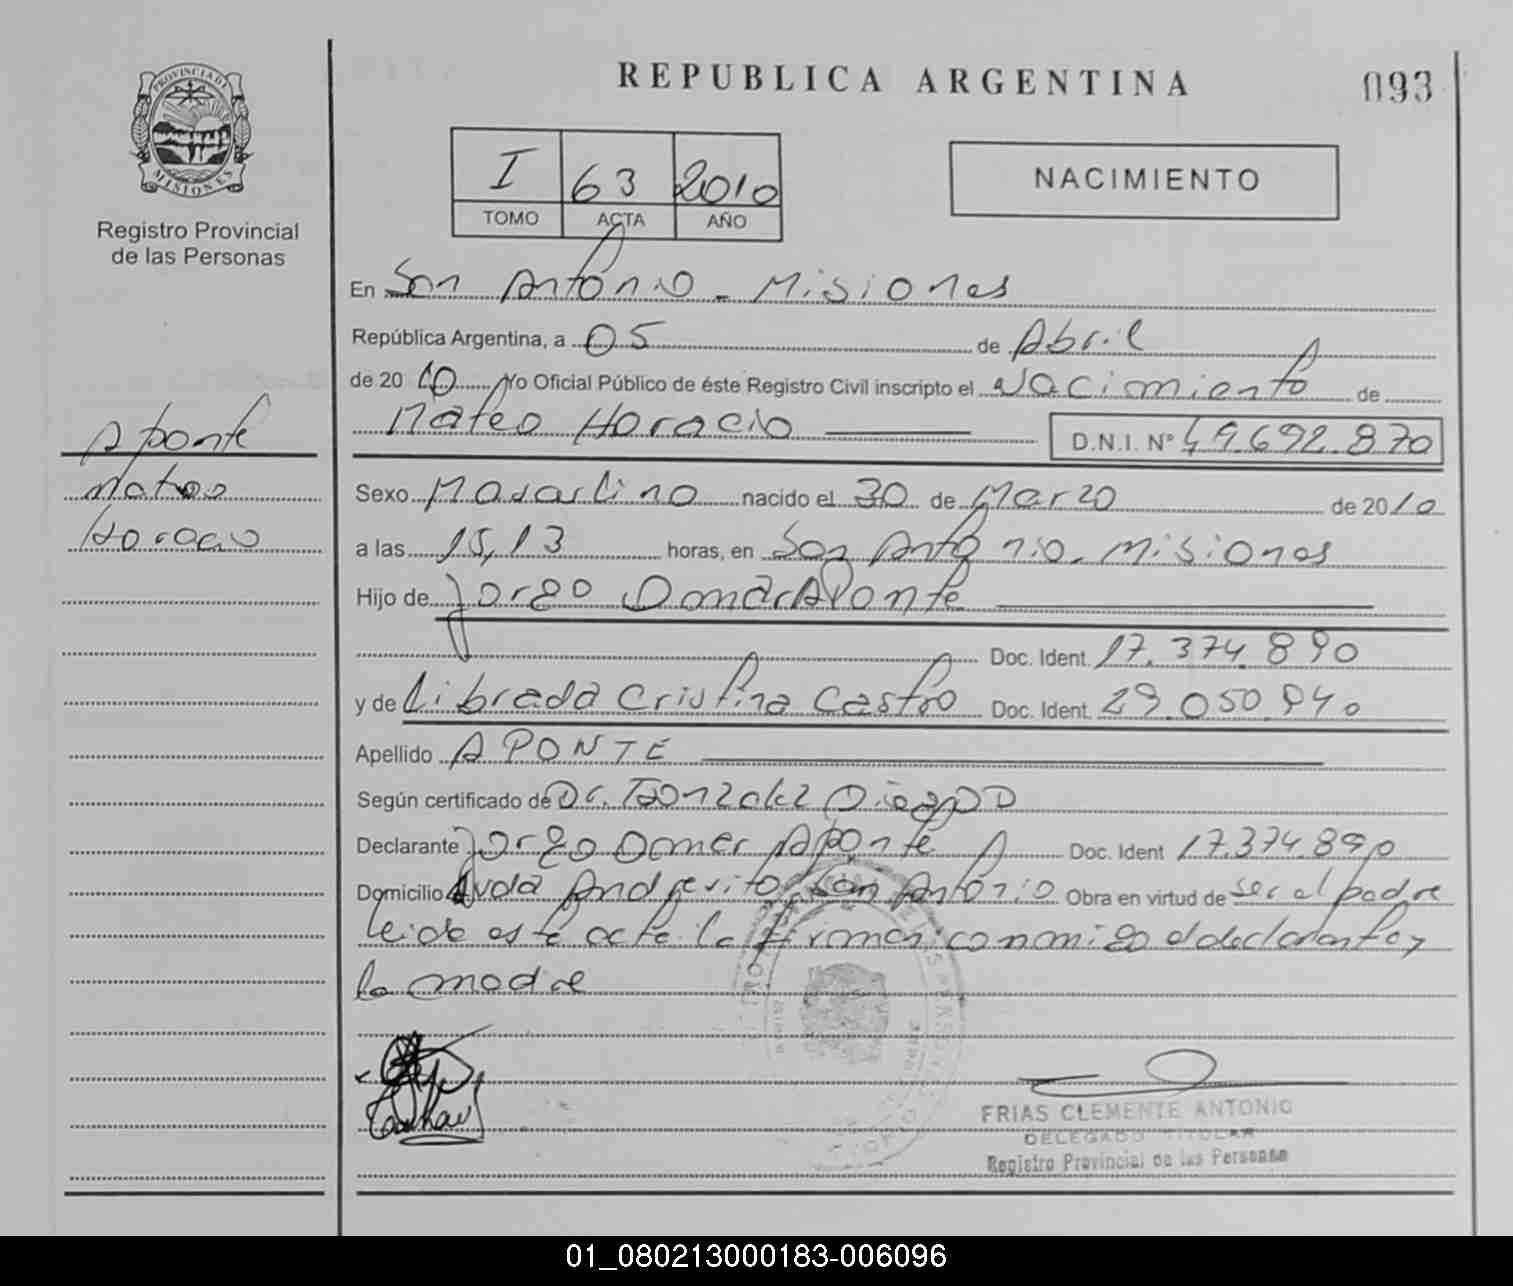 PROVINCIA DE
MISIONES
Registro Provincial
de las Personas
REPUBLICA ARGENTINA
093
I 63 2010
TOMO ACTA AÑO
NACIMIENTO
En San Antonio - Misiones
República Argentina, a 05 de Abril
de 2010 Yo Oficial Público de éste Registro Civil inscripto el Nacimiento de
Mateo Horacio D.N.I. N° 49.692.870
Aponte
Mateo
Horacio
Sexo Masculino nacido el 30 de Marzo de 2010
a las 15,13 horas, en San Antonio - Misiones
Hijo de Jorge Omar Aponte
Doc. Ident. 17.374.890
y de Librada Cristina Castro Doc. Ident. 29.050.940
Apellido APONTE
Según certificado de Dr. Gonzalez Diego D
Declarante Jorge Omar Aponte Doc. Ident 17.374.890
Domicilio Avda Andresito San Antonio Obra en virtud de ser el padre
leida este acta la firman conmigo el declarante y
la madre
FRIAS CLEMENTE ANTONIO
DELEGADO TITULAR
Registro Provincial de las Personas
01_080213000183-006096